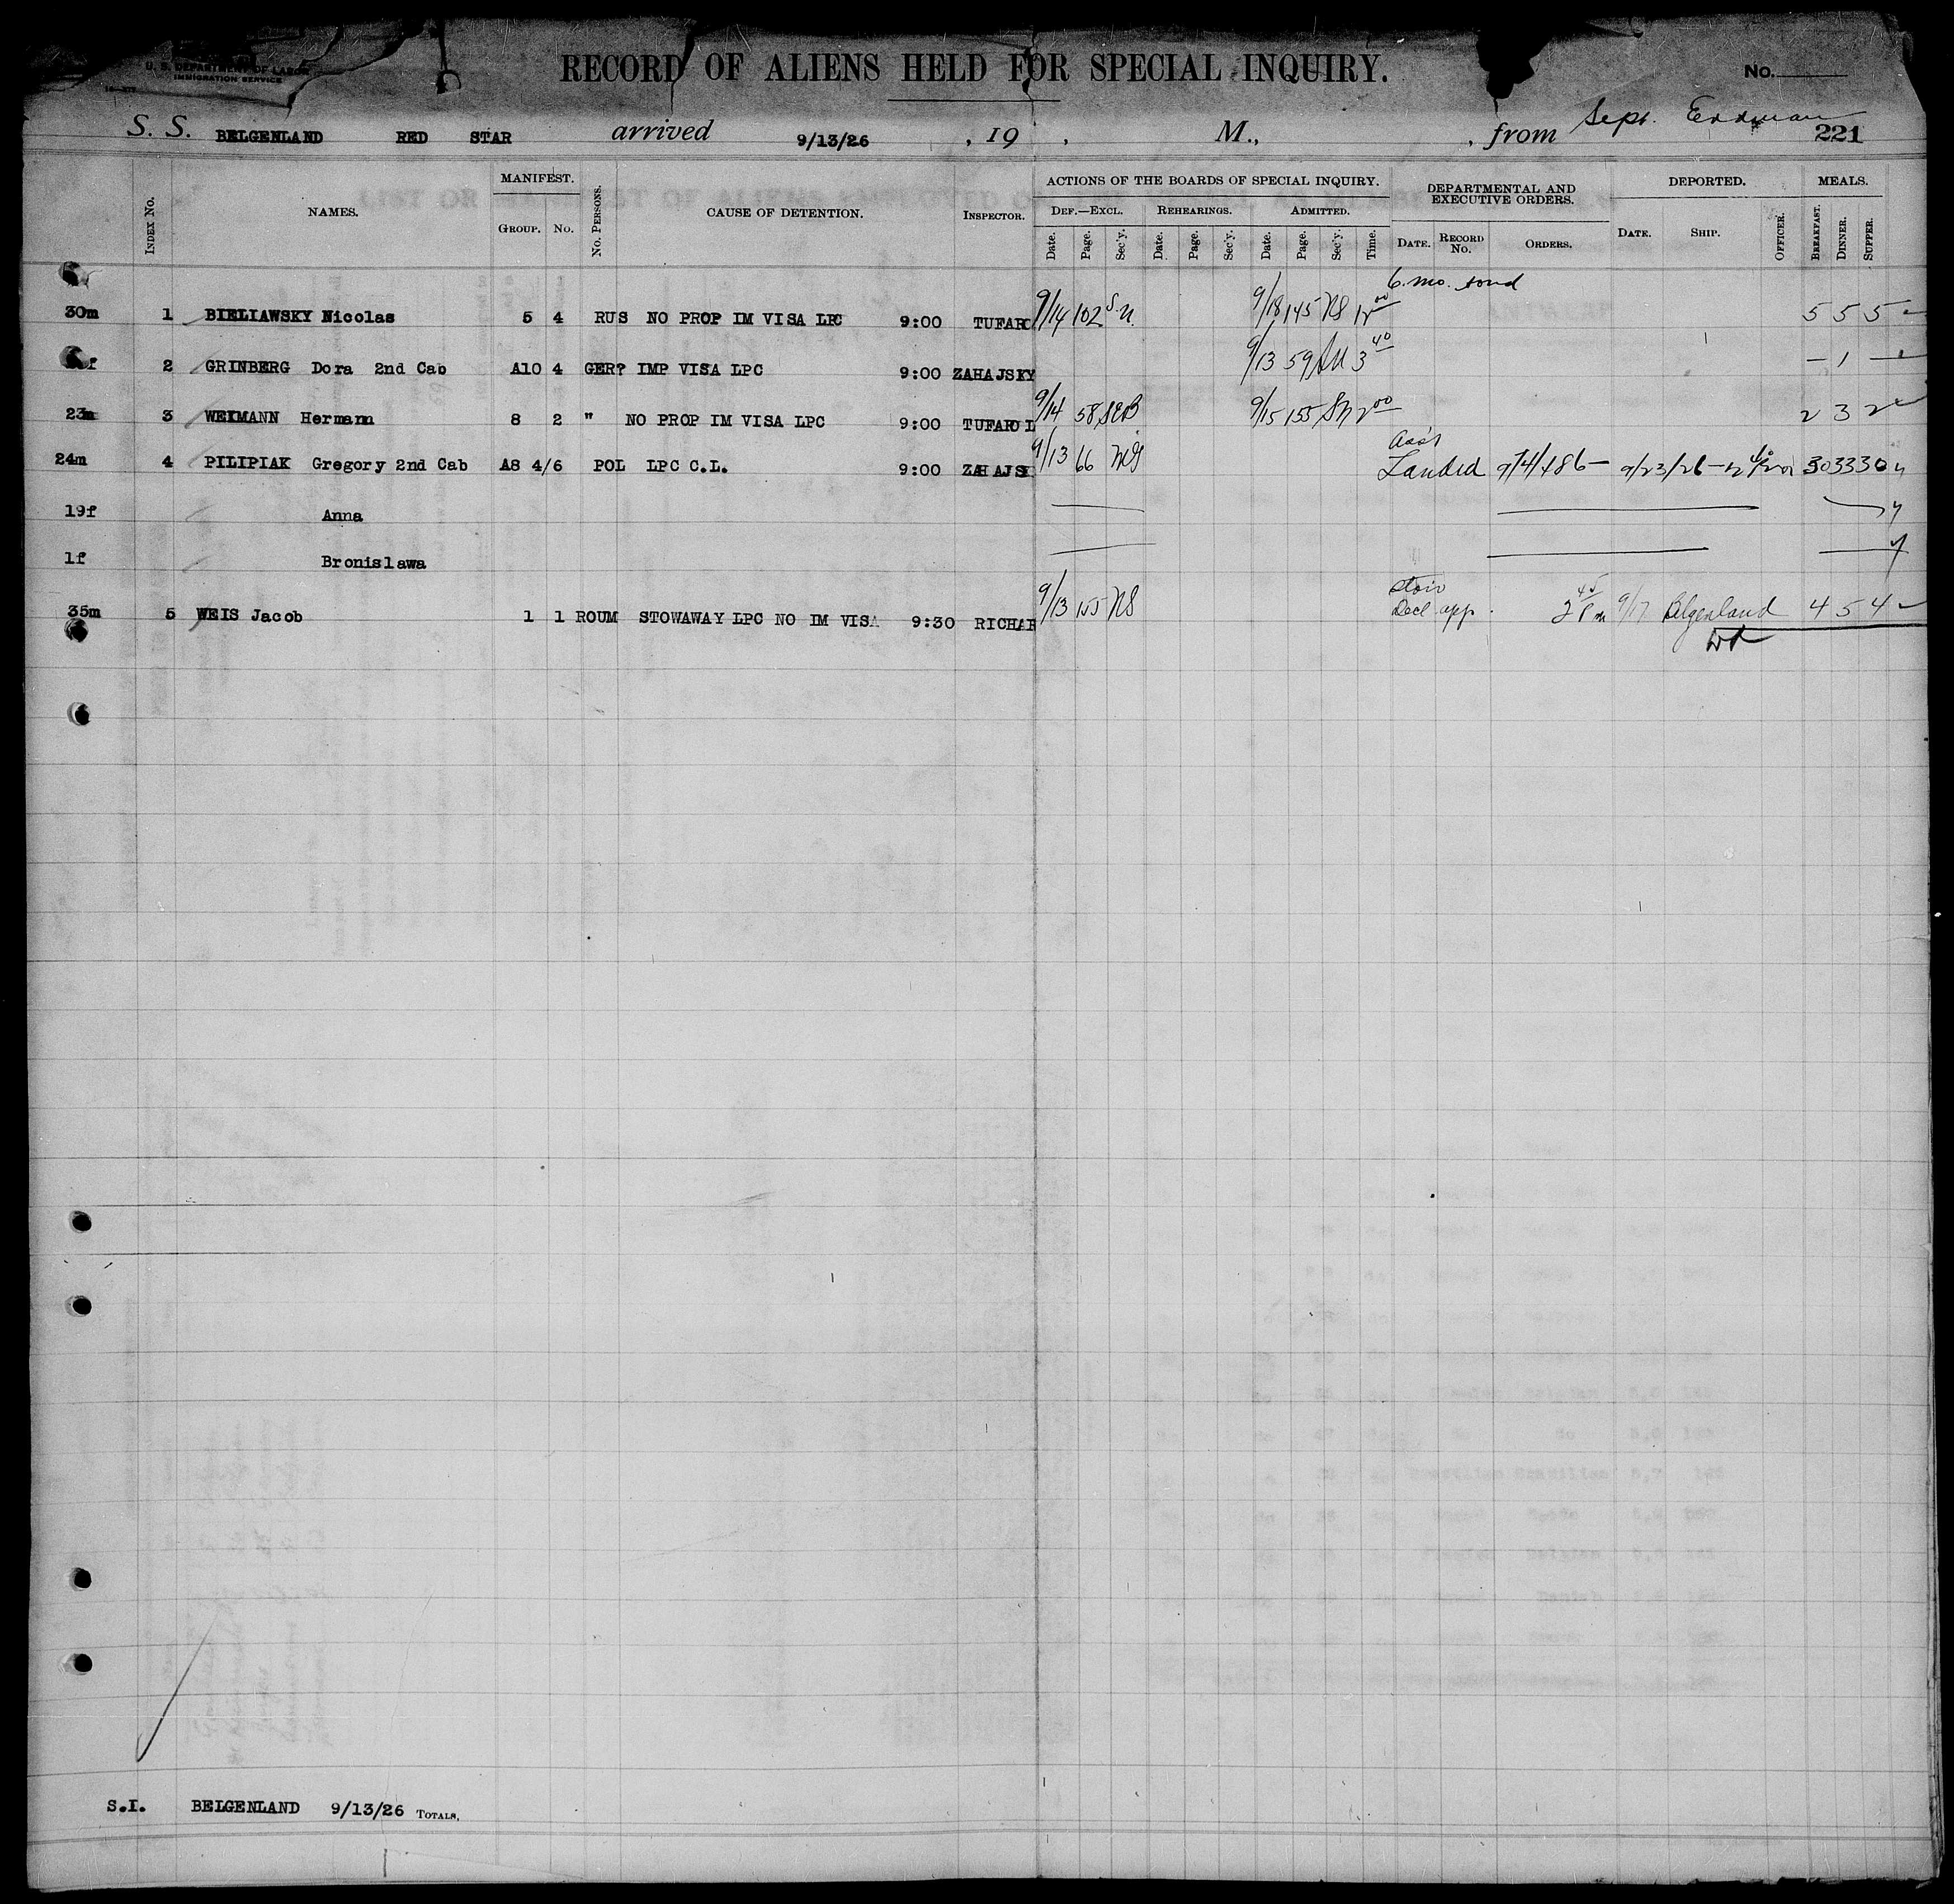 U. S. DEPARTMENT OF LABOR
IMMIGRATION SERVICE
RECORD OF ALIENS HELD FOR SPECIAL INQUIRY.
No.
S. S. BELGENLAND RED STAR arrived 9/13/26 , 19 , M., , from Sept. 221
INDEX No. NAMES. MANIFEST. GROUP. No. No. PERSONS. CAUSE OF DETENTION. INSPECTOR. ACTIONS OF THE BOARDS OF SPECIAL INQUIRY. DEF.—EXCL. REHEARINGS. ADMITTED. DEPARTMENTAL AND EXECUTIVE ORDERS. DEPORTED. MEALS.
Date. Page. Sec'y. Date. Page. Sec'y. Date. Page. Sec'y. Time. DATE. RECORD No. ORDERS. DATE. SHIP. OFFICER. BREAKFAST. DINNER. SUPPER.
6. mo.
30m 1 BIELIAWSKY Nicolas 5 4 RUS NO PROP IM VISA LPC 9:00 TUFARO 9/14 102 S.N. 9/18 145 NS 5 5 5
f 2 GRINBERG Dora 2nd Cab A10 4 GER? IMP VISA LPC 9:00 ZAHAJSKY 9/13 59 3 40 – 1 –
23m 3 WEIMANN Hermann 8 2 " NO PROP IM VISA LPC 9:00 TUFARO L 9/14 58 9/15 155 2 00 2 3 2
24m 4 PILIPIAK Gregory 2nd Cab A8 4/6 POL LPC C.L. 9:00 ZAHAJSK 9/13 66 Landed 9/23/26 30 33 30
19f Anna
1f Bronislawa
35m 5 WEIS Jacob 1 1 ROUM STOWAWAY LPC NO IM VISA 9:30 RICHAR 9/13 155 NS Decl. app. 2 45 Pm 9/17 Belgenland 4 5 4
S.I. BELGENLAND 9/13/26 TOTALS.